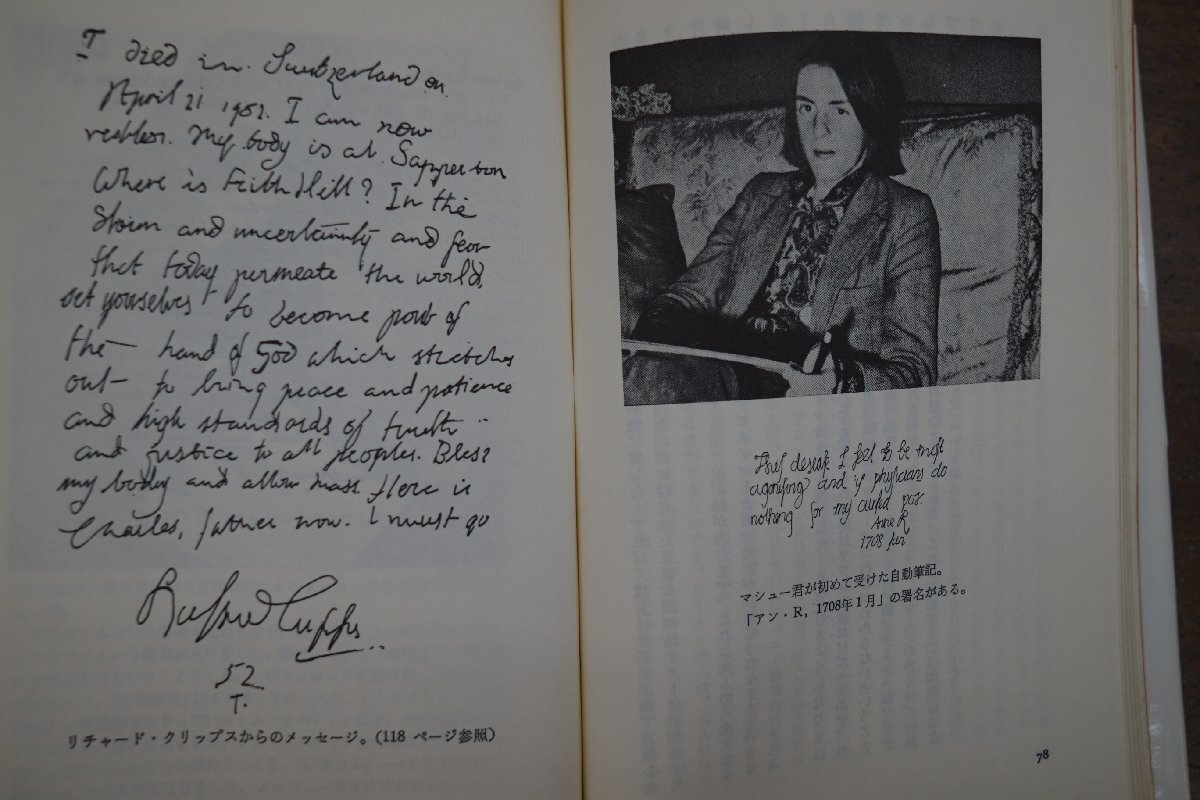 I died in Switzerland on
April 21 1952. I am now
restless. My body is at Sapperton
Where is Faith Hill? In the
Storm and uncertainty and fear
that today permeate the world,
set yourselves to become part of
the hand of God which stretches
out to bring peace and patience
and high standards of truth
and justice to all peoples. Bless
my body and allow mass. Here is
Charles, father now. I must go
52
T.
リチャード・クリップスからのメッセージ。(118 ページ参照)
I feel to be most
agonising and yᵉ physicians do
nothing for my cursed pox.
Anne R
1708 Jan
マシュー君が初めて受けた自動筆記。
「アン・R，1708年1月」の署名がある。
78